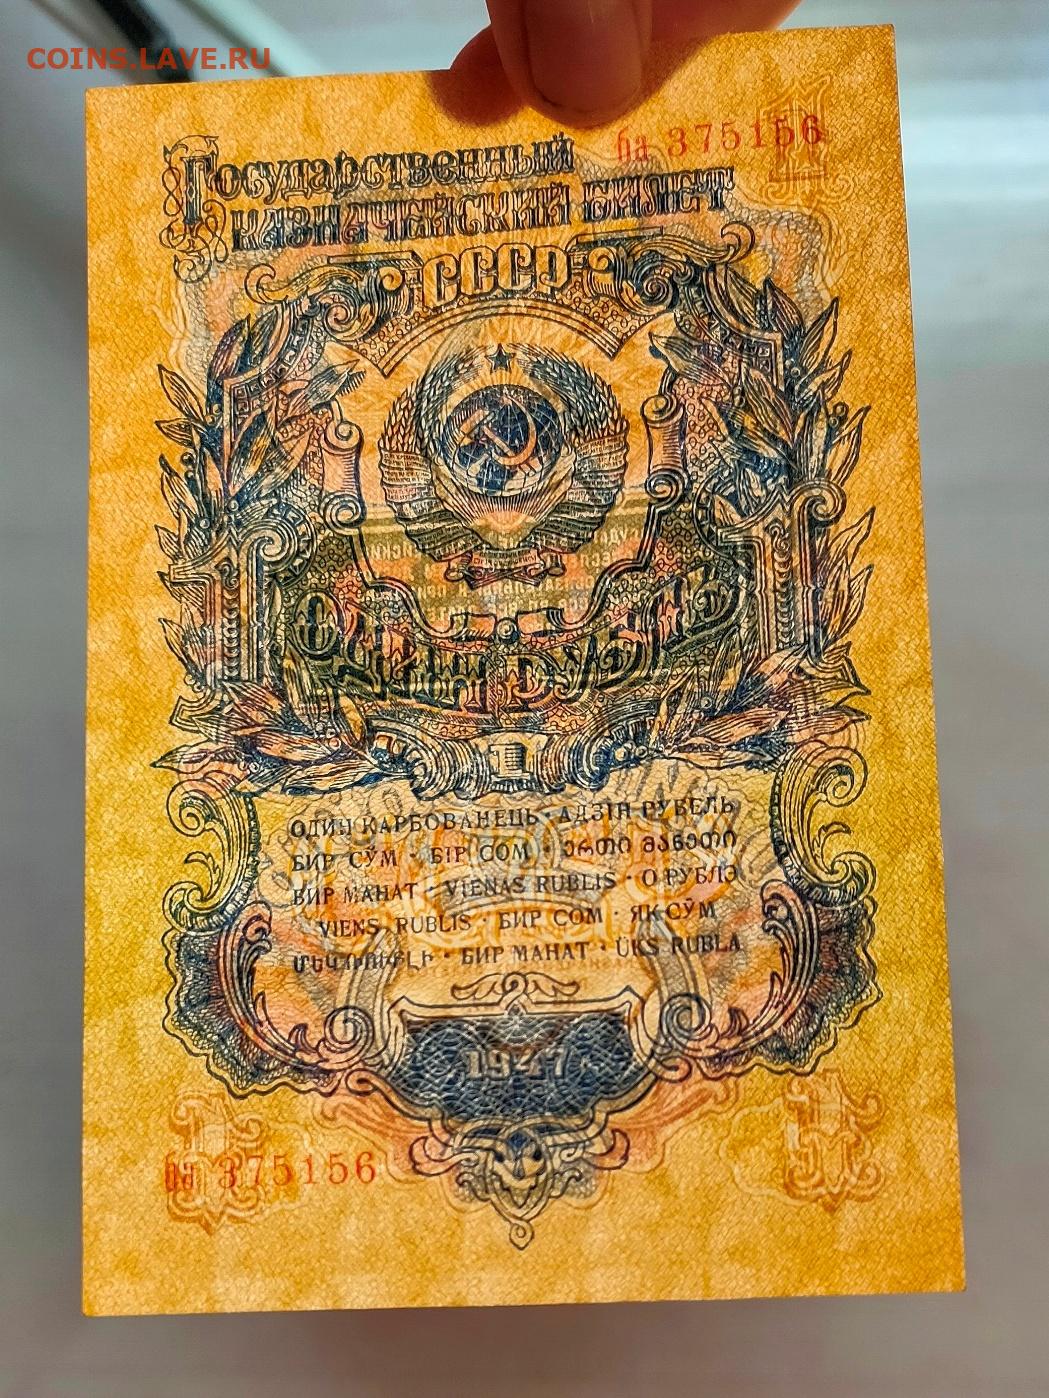 COINS.LAVE.RU
ба 375156
Государственный
казначейский билет
СССР
ОДИН РУБЛЬ
1
ОДИН КАРБОВАНЕЦЬ · АДЗІН РУБЕЛЬ
БИР СЎМ · БІР СОМ · ერთი მანეთი
БИР МАНАТ · VIENAS RUBLIS · О РУБЛЭ
VIENS RUBLIS · БИР СОМ · ЯК СӮМ
ՄԵԿ ՌՈՒԲԼԻ · БИР МАНАТ · ÜKS RUBLA
1947
ба 375156